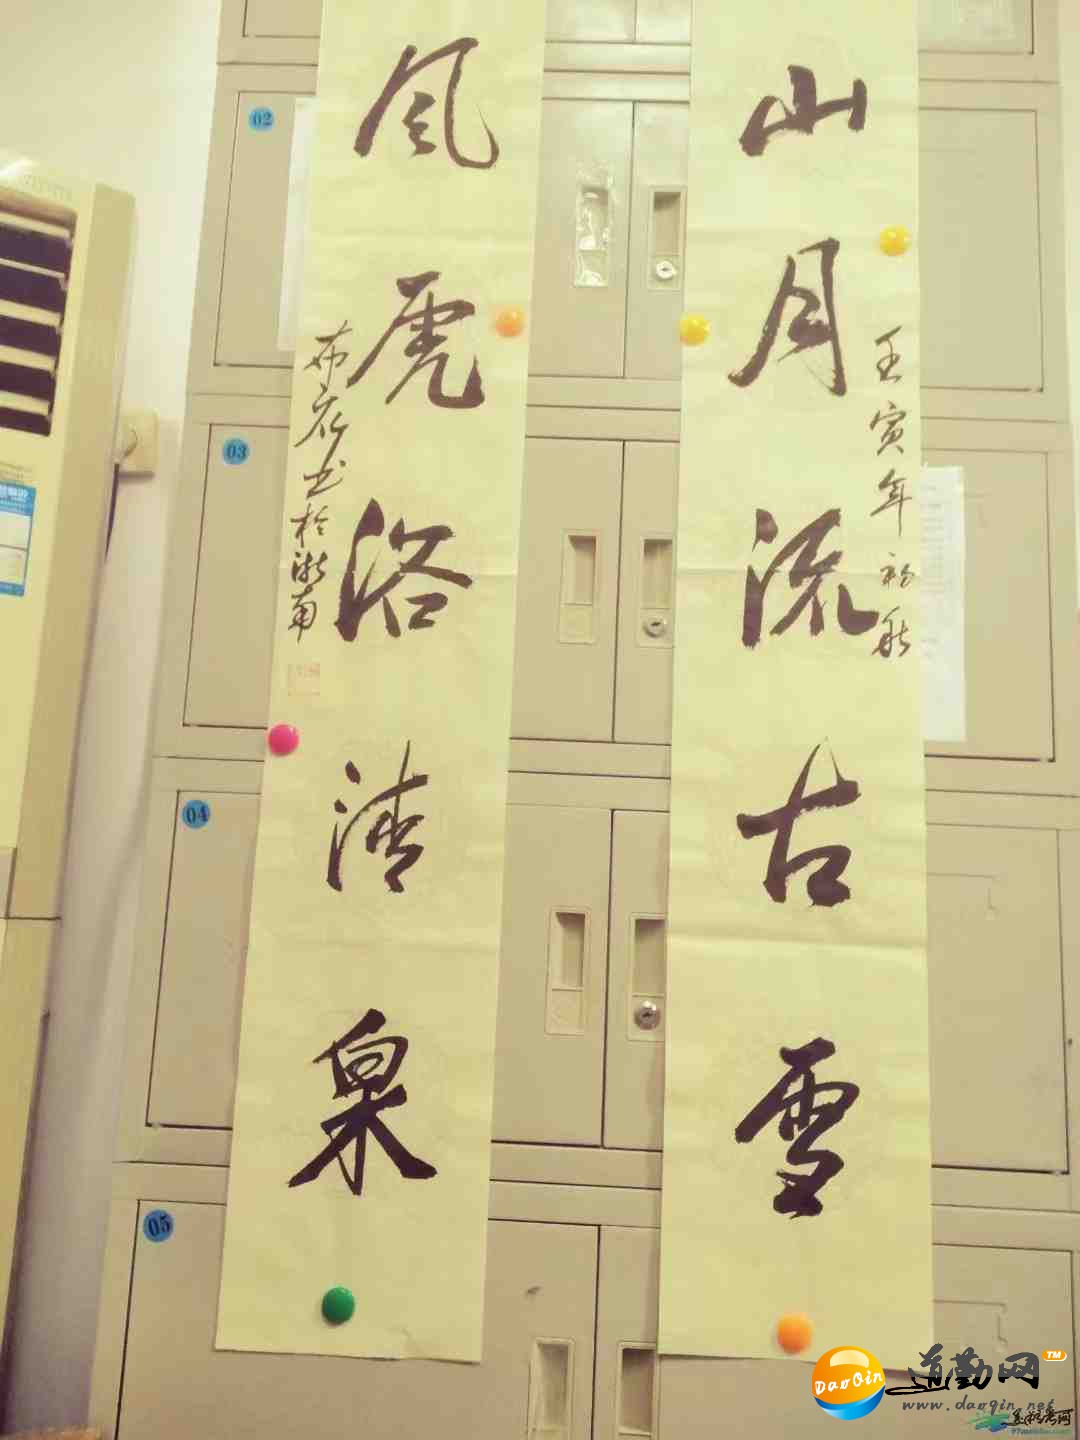 山月流古雪
壬寅年初秋
风虎洛清泉
布衣书于浙南
02
03
04
05
DaoQin
道勤网
TM
www.daoqin.net